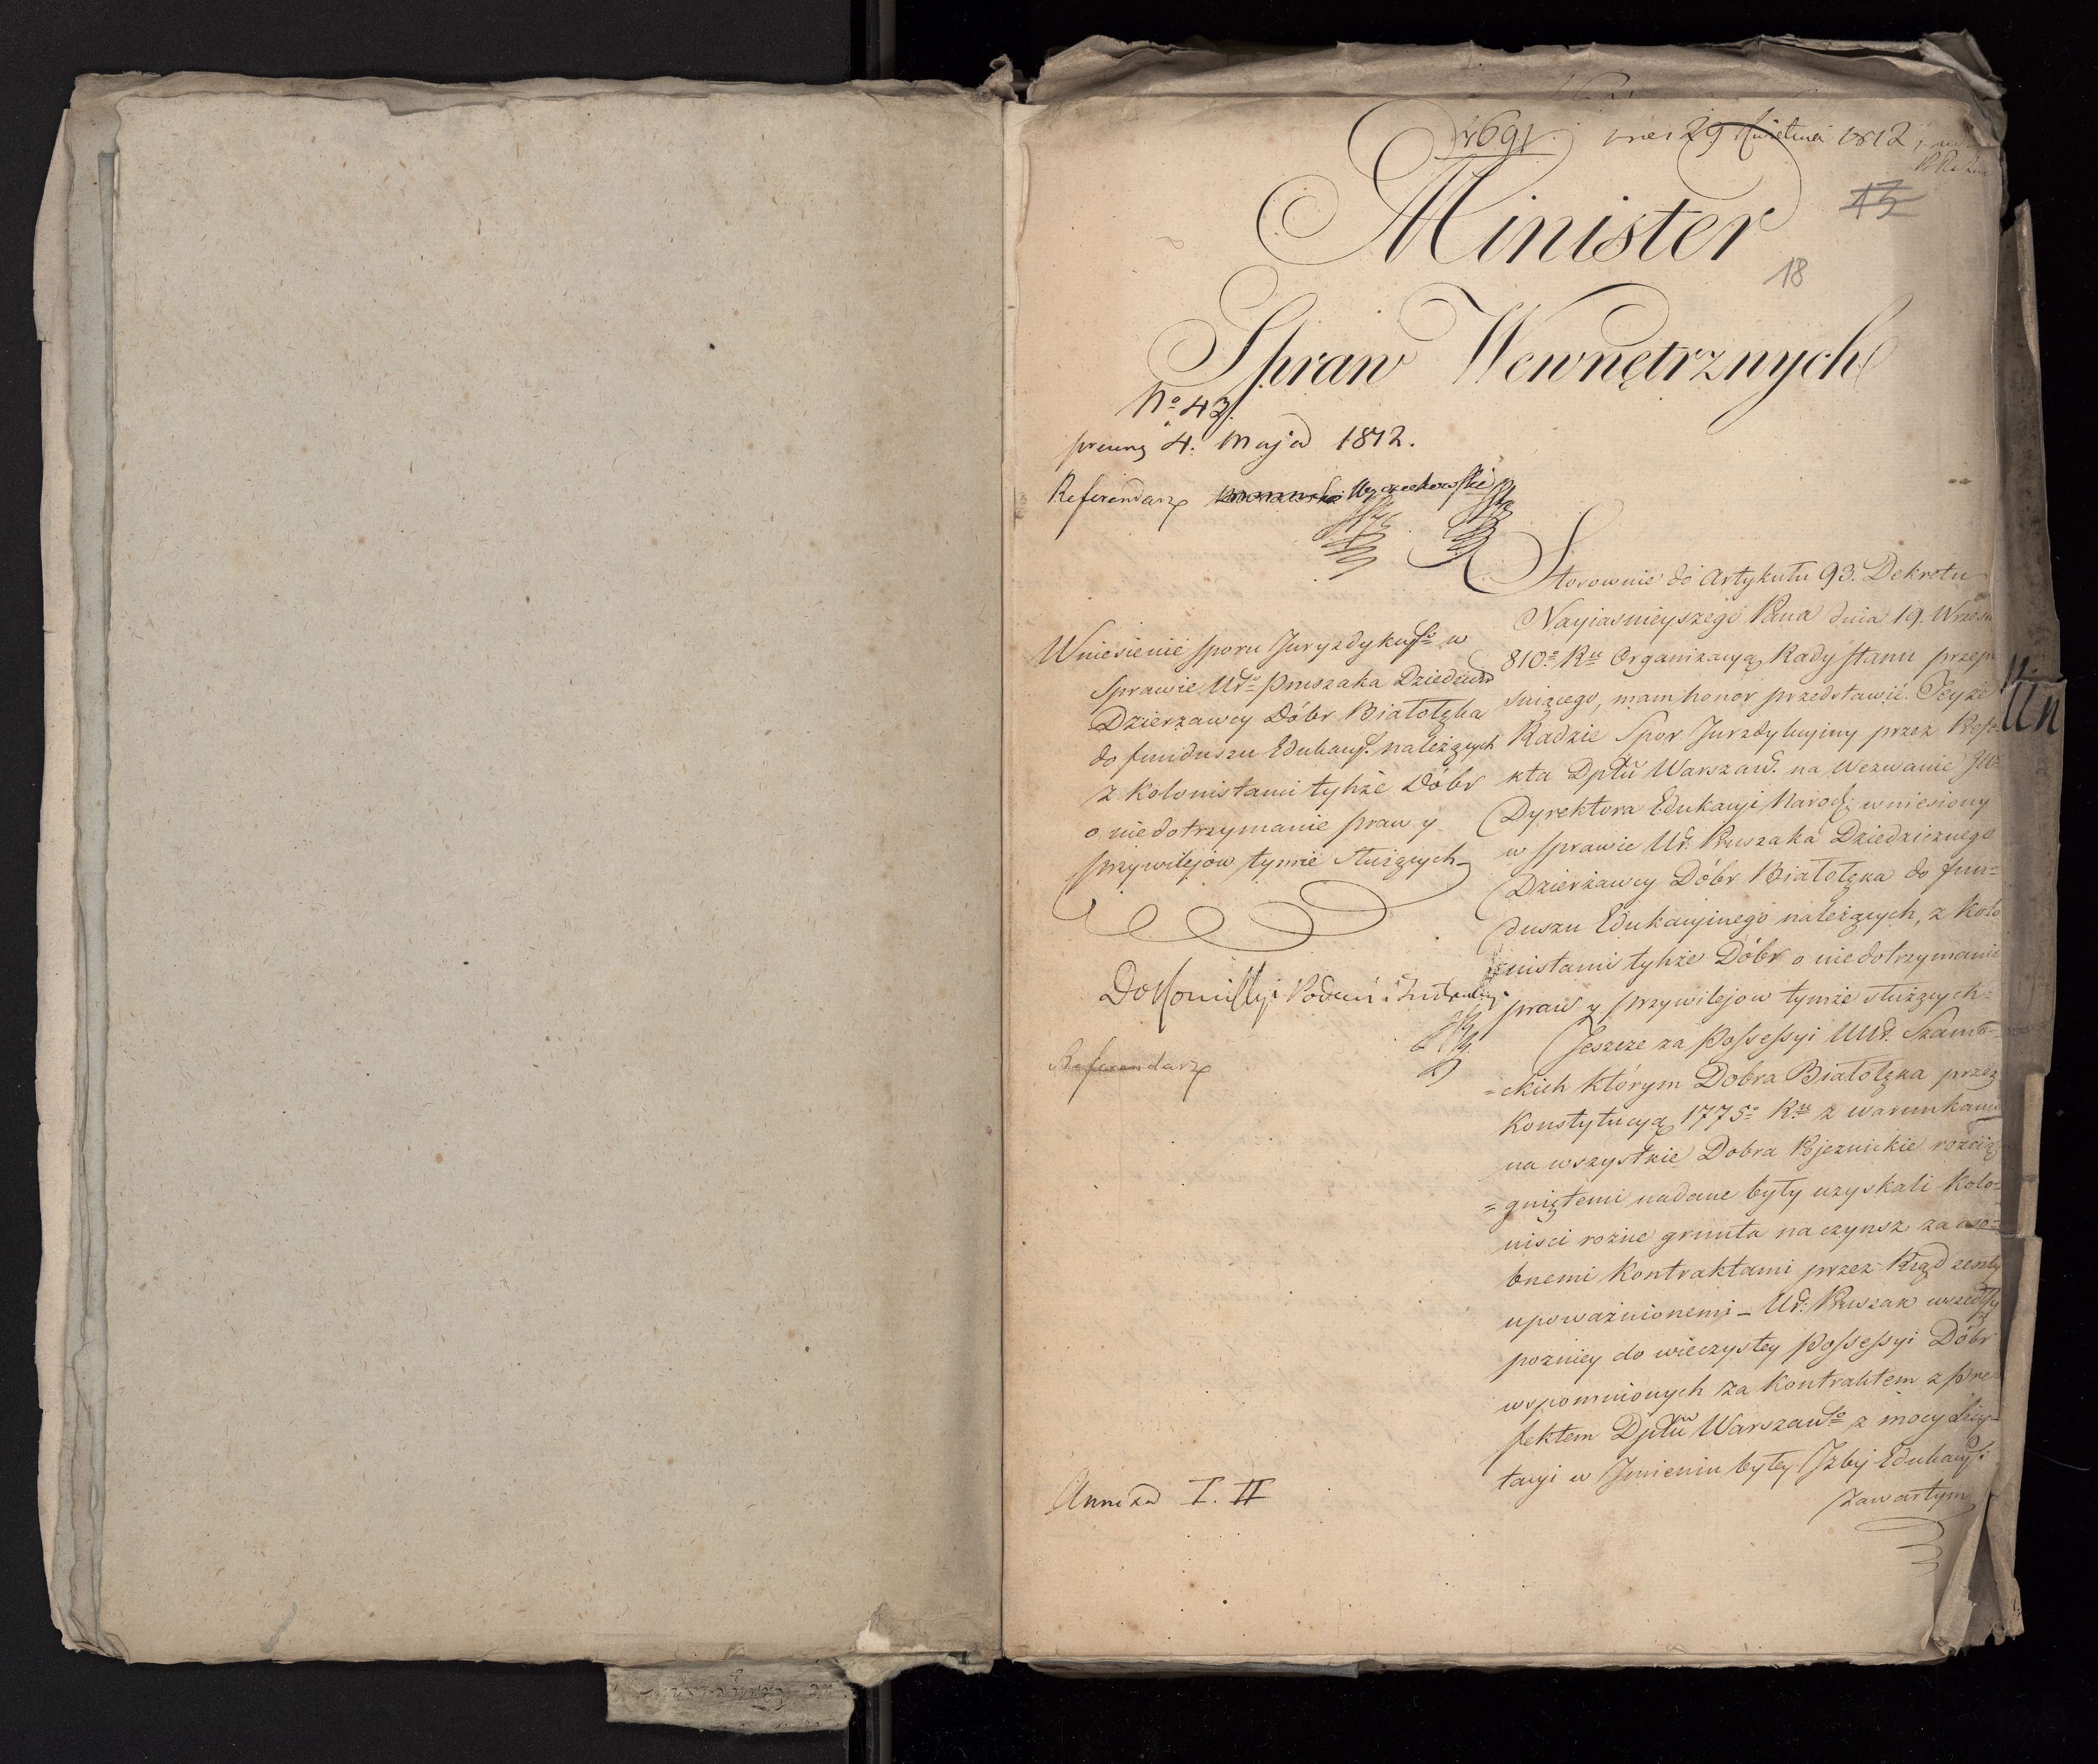 1691. 29 Kwietnia 1812
15
Minister
18
Spraw Wewnętrznych
No 43.
4. Maja 1812.
Referendarz Wyczechowski
Wniesienie sporu Juryzdykcyſo w
Sprawie Uro Pruszaka Dziedzicz
Dzierzawcy Dóbr Białołęka
do funduszu Edukacyſ. należących
z Kolonistami tychże Dóbr
o niedotrzymanie praw y
przywilejow tymże służących
Do Kommissyi Podań i Instrukcyi
Referendarz
Annexa I. II
Stosownie do Artykułu 93. Dekretu
Nayiasnieyszego Pana dnia 19. Wrześn
810o Ru Organizacyą Rady Stanu przep
suiącego, mam honor przedstawić Teyże
Radzie Spor Jurzdykcyiny przez Prefe
kta Dptu Warszaw. na wezwanie JW
Dyrektora Edukacyi Narod: wniesiony
w sprawie Ur. Pruszaka Dziedzicznego
Dzierżawcy Dóbr Białołęka do fun=
duszu Edukacyinego należących, z Kolo
nistami tychże Dóbr o niedotrzymanie
praw y przywilejow tymże służących=
Jeszcze za Possessyi UUr. Szamo=
=ckich którym Dobra Białołęka przez
Konstytucyą 1775o Ru z warunkami
na wszystkie Dobra Pojezuickie rozcią
=gniętemi nadane były uzyskali Kolo=
niści rożne grunta na czynsz za oso=
bnemi Kontraktami przez Rząd zeszły
upoważnionemi _ Ur: Pruszak wszedłszy
pozniey do wieczystey Possessyi Dóbr
wspomnionych za Kontraktem z Pre
fektem Dptu Warszawſo z mocy Licy=
tacyi w Jmieniu byłey Izby Edukacyſ:
zawartym